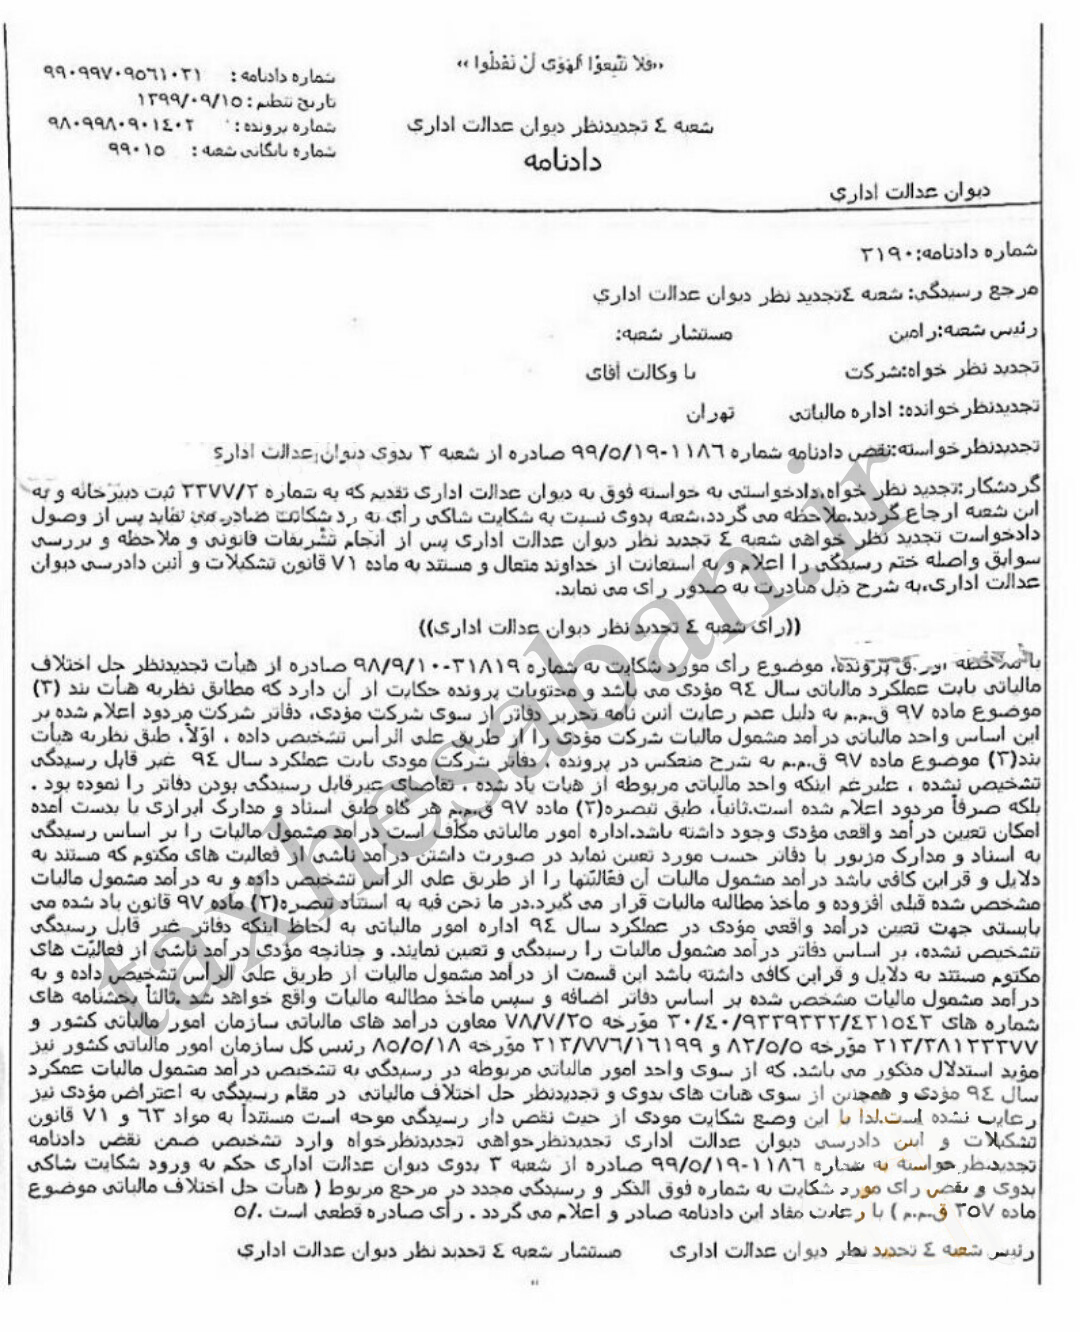 «فلا تتبعوا الهوى أن تعدلوا»
شماره دادنامه : ۹۹۰۹۹۷۰۹۵۶۱۰۳۱
تاریخ تنظیم : ۱۳۹۹/۰۹/۱۵
شماره پرونده : ۹۸۰۹۹۸۰۹۰۱٤۰۲
شماره بایگانی شعبه : ۹۹۰۱۵
شعبه ٤ تجدیدنظر دیوان عدالت اداری
دادنامه
دیوان عدالت اداری
شماره دادنامه:۲۱۹۰
مرجع رسیدگی: شعبه ٤تجدید نظر دیوان عدالت اداری
رئیس شعبه:رامین مستشار شعبه:
تجدید نظر خواه:شرکت با وکالت آقای
تجدیدنظرخوانده: اداره مالیاتی تهران
تجدیدنظرخواسته:نقض دادنامه شماره ۱۱۸۶-۹۹/۵/۱۹ صادره از شعبه ۳ بدوی دیوان عدالت اداری
گردشکار:تجدید نظر خواه،دادخواستی به خواسته فوق به دیوان عدالت اداری تقدیم که به شماره ۲۳۷۷/۲ ثبت دبیرخانه و به
این شعبه ارجاع گردید.ملاحظه می گردد،شعبه بدوی نسبت به شکایت شاکی رأی به رد شکایت صادر می نماید پس از وصول
دادخواست تجدید نظر خواهی شعبه ٤ تجدید نظر دیوان عدالت اداری پس از انجام تشریفات قانونی و ملاحظه و بررسی
سوابق واصله ختم رسیدگی را اعلام و به استعانت از خداوند متعال و مستند به ماده ۷۱ قانون تشکیلات و آئین دادرسی دیوان
عدالت اداری،به شرح ذیل مبادرت به صدور رای می نماید.
((رأی شعبه ٤ تجدید نظر دیوان عدالت اداری))
با ملاحظه اوراق پرونده، موضوع رأی مورد شکایت به شماره ۳۱۸۱۹-۹۸/۹/۱۰ صادره از هیأت تجدیدنظر حل اختلاف
مالیاتی بابت عملکرد مالیاتی سال ۹٤ مؤدی می باشد و محتویات پرونده حکایت از آن دارد که مطابق نظریه هیأت بند (۳)
موضوع ماده ۹۷ ق.م.م به دلیل عدم رعایت آئین نامه تحریر دفاتر از سوی شرکت مؤدی، دفاتر شرکت مردود اعلام شده بر
این اساس واحد مالیاتی درآمد مشمول مالیات شرکت مؤدی را از طریق علی الرأس تشخیص داده ، اوّلاً، طبق نظریه هیأت
بند(۳) موضوع ماده ۹۷ ق.م.م به شرح منعکس در پرونده ، دفاتر شرکت مودی بابت عملکرد سال ۹٤ غیر قابل رسیدگی
تشخیص نشده ، علیرغم اینکه واحد مالیاتی مربوطه از هیات یاد شده ، تقاضای غیرقابل رسیدگی بودن دفاتر را نموده بود .
بلکه صرفاً مردود اعلام شده است.ثانیاً، طبق تبصره(۲) ماده ۹۷ ق.م.م هر گاه طبق اسناد و مدارک ابرازی یا بدست آمده
امکان تعیین درآمد واقعی مؤدی وجود داشته باشد.اداره امور مالیاتی مکلّف است درآمد مشمول مالیات را بر اساس رسیدگی
به اسناد و مدارک مزبور یا دفاتر حسب مورد تعیین نماید در صورت داشتن درآمد ناشی از فعالیت های مکتوم که مستند به
دلایل و قراین کافی باشد درآمد مشمول مالیات آن فعّالیّتها را از طریق علی الرأس تشخیص داده و به درآمد مشمول مالیات
مشخص شده قبلی افزوده و مأخذ مطالبه مالیات قرار می گیرد.در ما نحن فیه به استناد تبصره(۲) ماده ۹۷ قانون یاد شده می
بایستی جهت تعیین درآمد واقعی مؤدی در عملکرد سال ۹٤ اداره امور مالیاتی به لحاظ اینکه دفاتر غیر قابل رسیدگی
تشخیص نشده، بر اساس دفاتر درآمد مشمول مالیات را رسیدگی و تعیین نمایند. و چنانچه مؤدی درآمد ناشی از فعالیّت های
مکتوم مستند به دلایل و قراین کافی داشته باشد این قسمت از درآمد مشمول مالیات از طریق علی الرأس تشخیص داده و به
درآمد مشمول مالیات مشخص شده بر اساس دفاتر اضافه و سپس مأخذ مطالبه مالیات واقع خواهد شد .ثالثاً بخشنامه های
شماره های ۳۰/٤۰/۹۳۳۹۳۳۲/٤۲۱۵٤۲ مؤرخه ۷۸/۷/۲۵ معاون درآمد های مالیاتی سازمان امور مالیاتی کشور و
۲۱۲/۳۸۱۲۳۳۷۷ مؤرخه ۸۲/۵/۵ و ۲۱۲/۷۷۶/۱۶۱۹۹ مؤرخه ۸۵/۵/۱۸ رئیس کل سازمان امور مالیاتی کشور نیز
مؤید استدلال مذکور می باشد. که از سوی واحد امور مالیاتی مربوطه در رسیدگی به تشخیص درآمد مشمول مالیات عمکرد
سال ۹٤ مؤدی و همچنین از سوی هیات های بدوی و تجدیدنظر حل اختلاف مالیاتی در مقام رسیدگی به اعتراض مؤدی نیز
رعایت نشده است.لذا با این وصع شکایت مودی از حیث نقص دار رسیدگی موجه است مستنداً به مواد ۶۳ و ۷۱ قانون
تشکیلات و آیین دادرسی دیوان عدالت اداری تجدیدنظرخواهی تجدیدنظرخواه وارد تشخیص ضمن نقض دادنامه
تجدیدنظرخواسته به شماره ۱۱۸۶-۹۹/۵/۱۹ صادره از شعبه ۳ بدوی دیوان عدالت اداری حکم به ورود شکایت شاکی
بدوی و نقض رای مورد شکایت به شماره فوق الذکر و رسیدگی مجدد در مرجع مربوط ( هیأت حل اختلاف مالیاتی موضوع
ماده ۲۵۷ ق.م.م ) با رعایت مفاد این دادنامه صادر و اعلام می گردد . رأی صادره قطعی است ./۵
رئیس شعبه ٤ تجدید نظر دیوان عدالت اداری مستشار شعبه ٤ تجدید نظر دیوان عدالت اداری
taxhesaban.ir